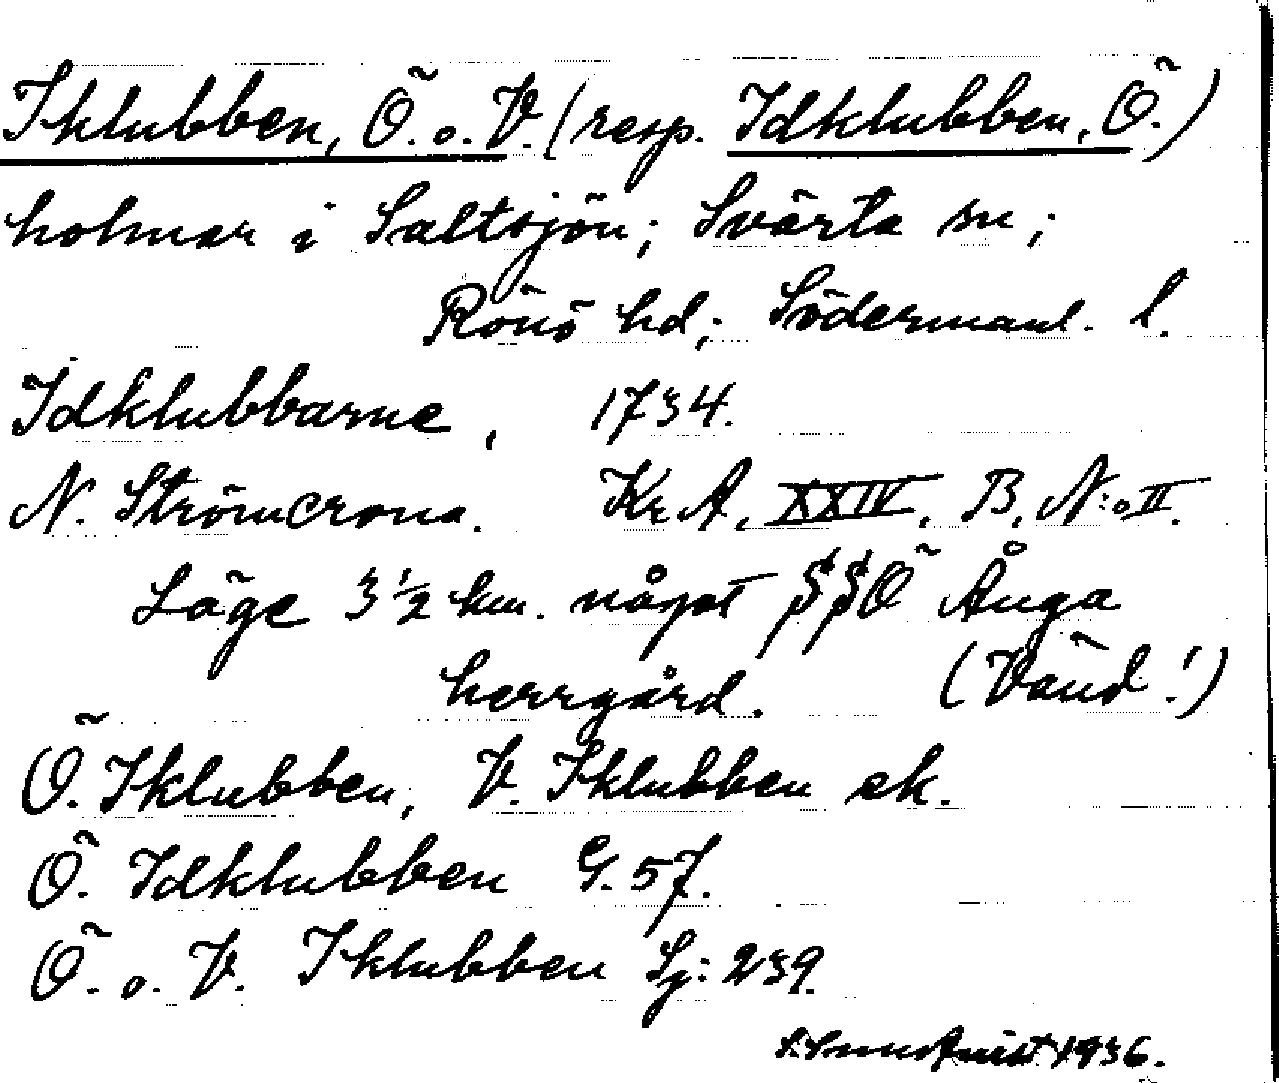 Iklubben, Ö. o. V. (resp. Idklubben, Ö.)
holmar i Saltsjön; Svärta sn;
Rönö hd; Södermanl. l.
Idklubbarne, 1734.
N. Strömcrona. Kr. A, XXXIV, B, N:o II.
Läge 3 1/2 km. något SSÖ Ånga
herrgård. (Vänd!)
Ö. Iklubben, V. Iklubben ek.
Ö. Idklubben G. 57.
Ö. o. V. Iklubben Sj: 239.
1936.